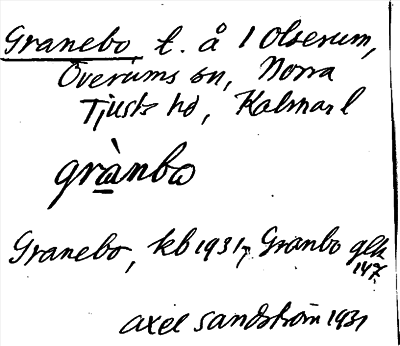 Granebo, t. å 1 Olserum,
Överums sn, Norra
Tjusts hd, Kalmar l
grànbo
Granebo, kb 1931, Granbo glk
147.
Axel Sandström 1931